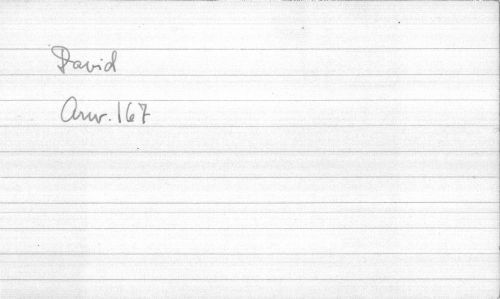 David
Anv. 167